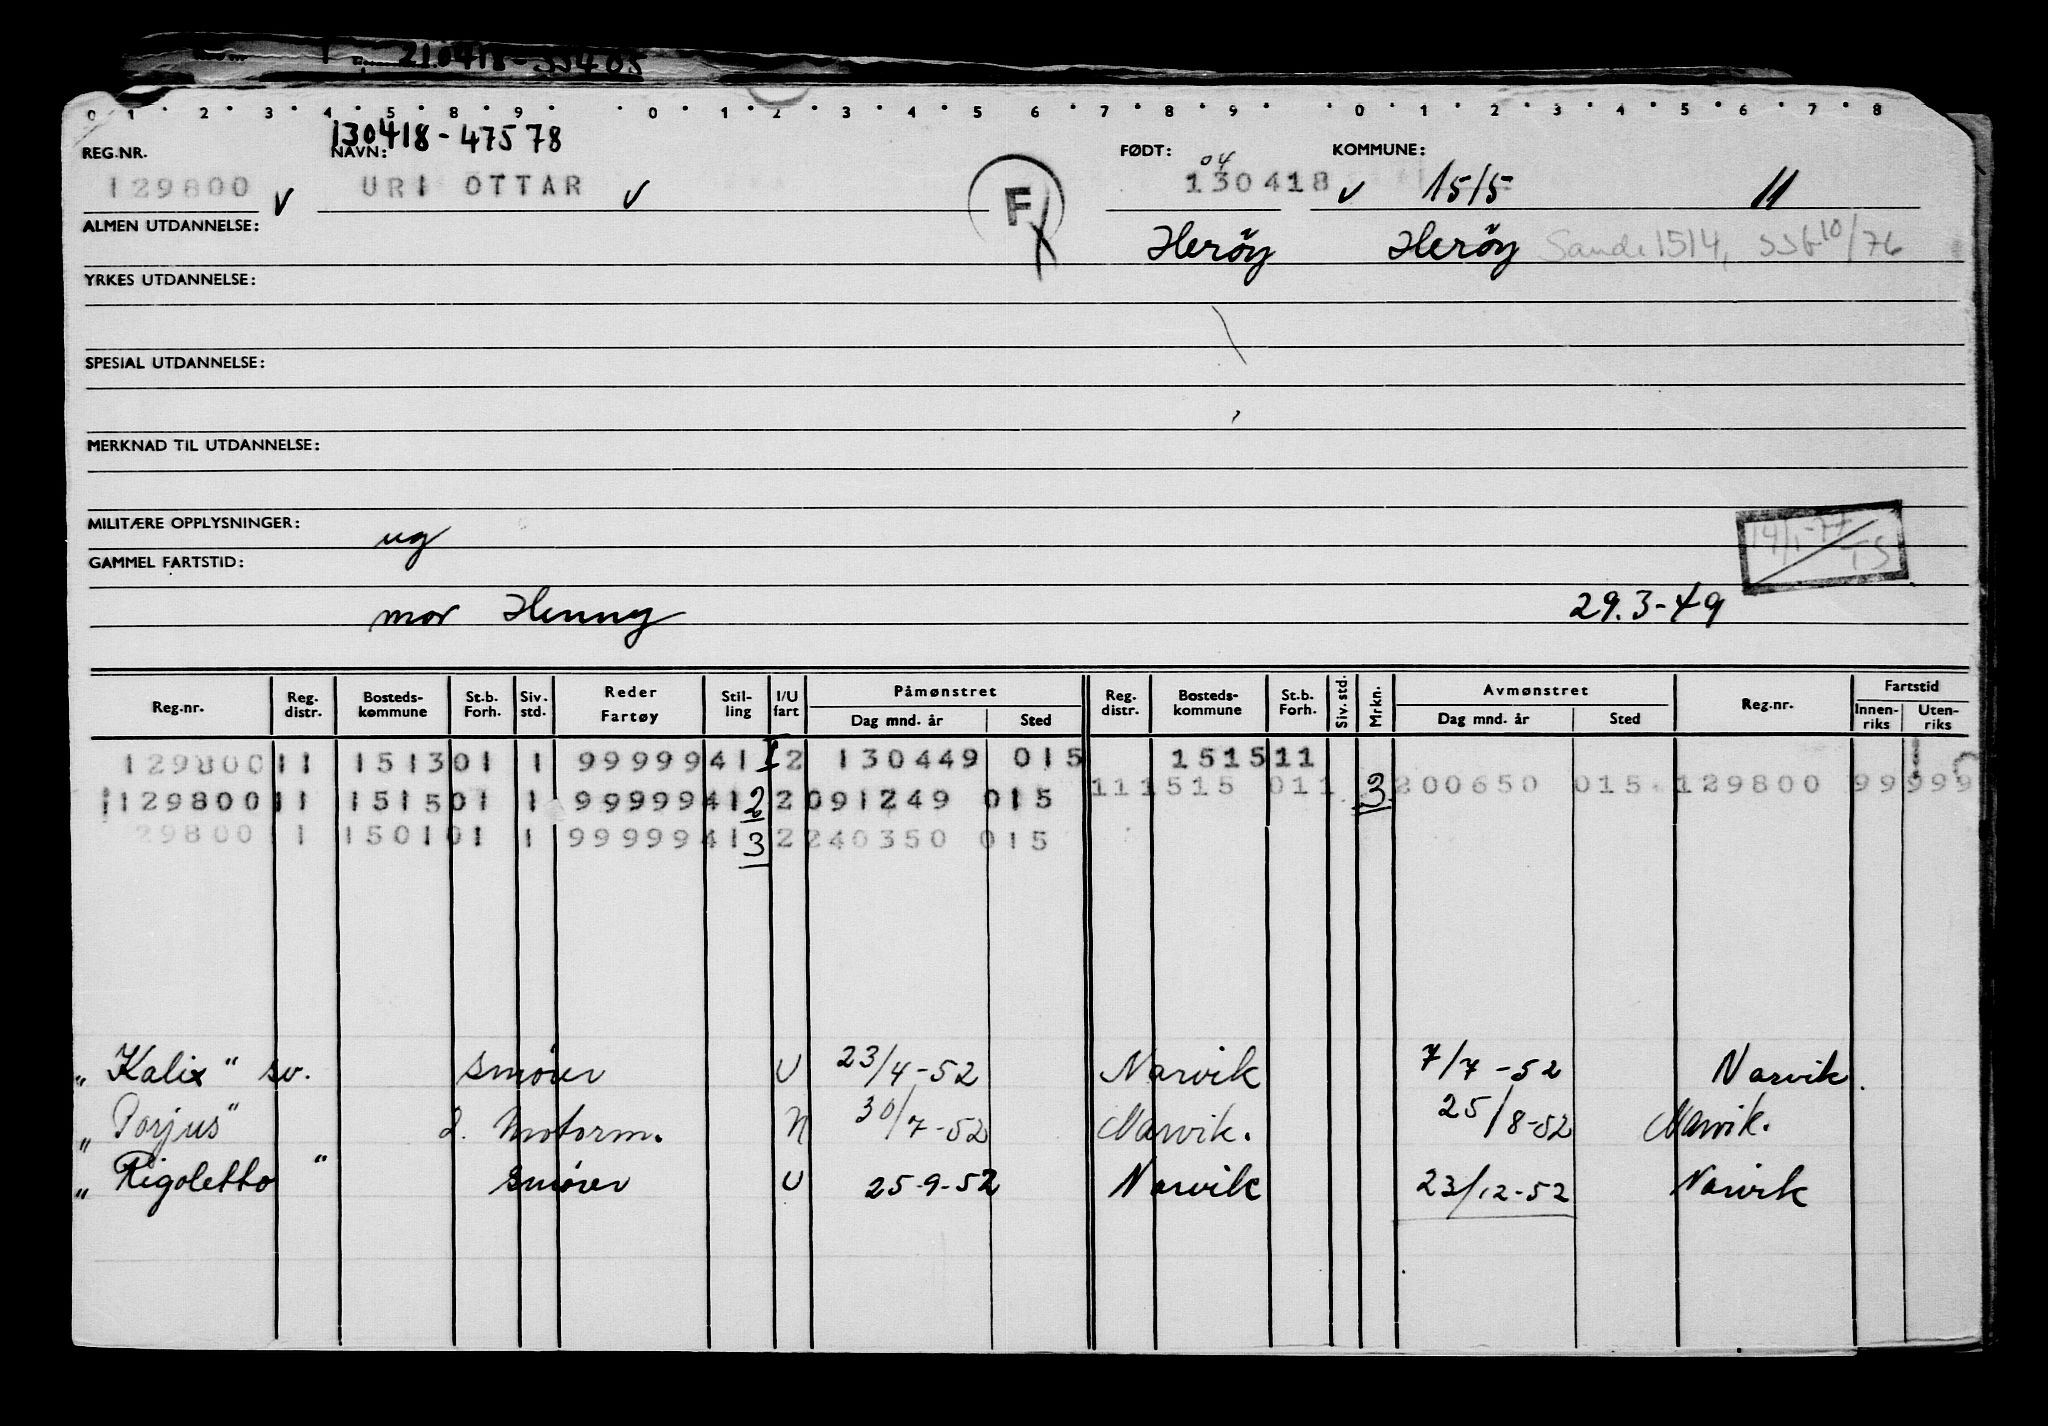 210418-33405
0 1 2 3 4 5 8 9 0 1 2 3 4 5 6 7 8 9 0 1 2 3 4 5 6 7 8
130418-47578
REG.NR. NAVN: FØDT: 04 KOMMUNE:
129800 v URI OTTAR v F 130418 v 1515 11
ALMEN UTDANNELSE: Herøy Herøy Sande 1514, SSB 10/76
YRKES UTDANNELSE:
SPESIAL UTDANNELSE:
MERKNAD TIL UTDANNELSE:
MILITÆRE OPPLYSNINGER: ug 14/1-77 TS
GAMMEL FARTSTID:
mor Henny 29.3-49
Reg.nr. Reg. distr. Bosteds-kommune St.b. Forh. Siv. std. Reder Fartøy Stil-ling I/U fart Påmønstret Dag mnd. år Sted Reg. distr. Bosteds-kommune St.b. Forh. Siv. std. Mrkn. Avmønstret Dag mnd. år Sted Reg.nr. Fartstid Innen-riks Uten-riks
129800 11 1513 01 1 99999 41 1 2 130449 015 1515 11
111515 011 3 200650 015 129800 99999
129800 11 1515 01 1 99999 41 2 2 091249 015
29800 1 1501 01 1 99999 41 3 2 240350 015
"Kalix" sv. smører U 23/4-52 Narvik 7/7-52 Narvik.
"Porjus" 2. Motorm. N 30/7-52 Narvik. 25/8-52 Narvik.
"Rigoletto" smører U 25-9-52 Narvik 23/12-52 Narvik